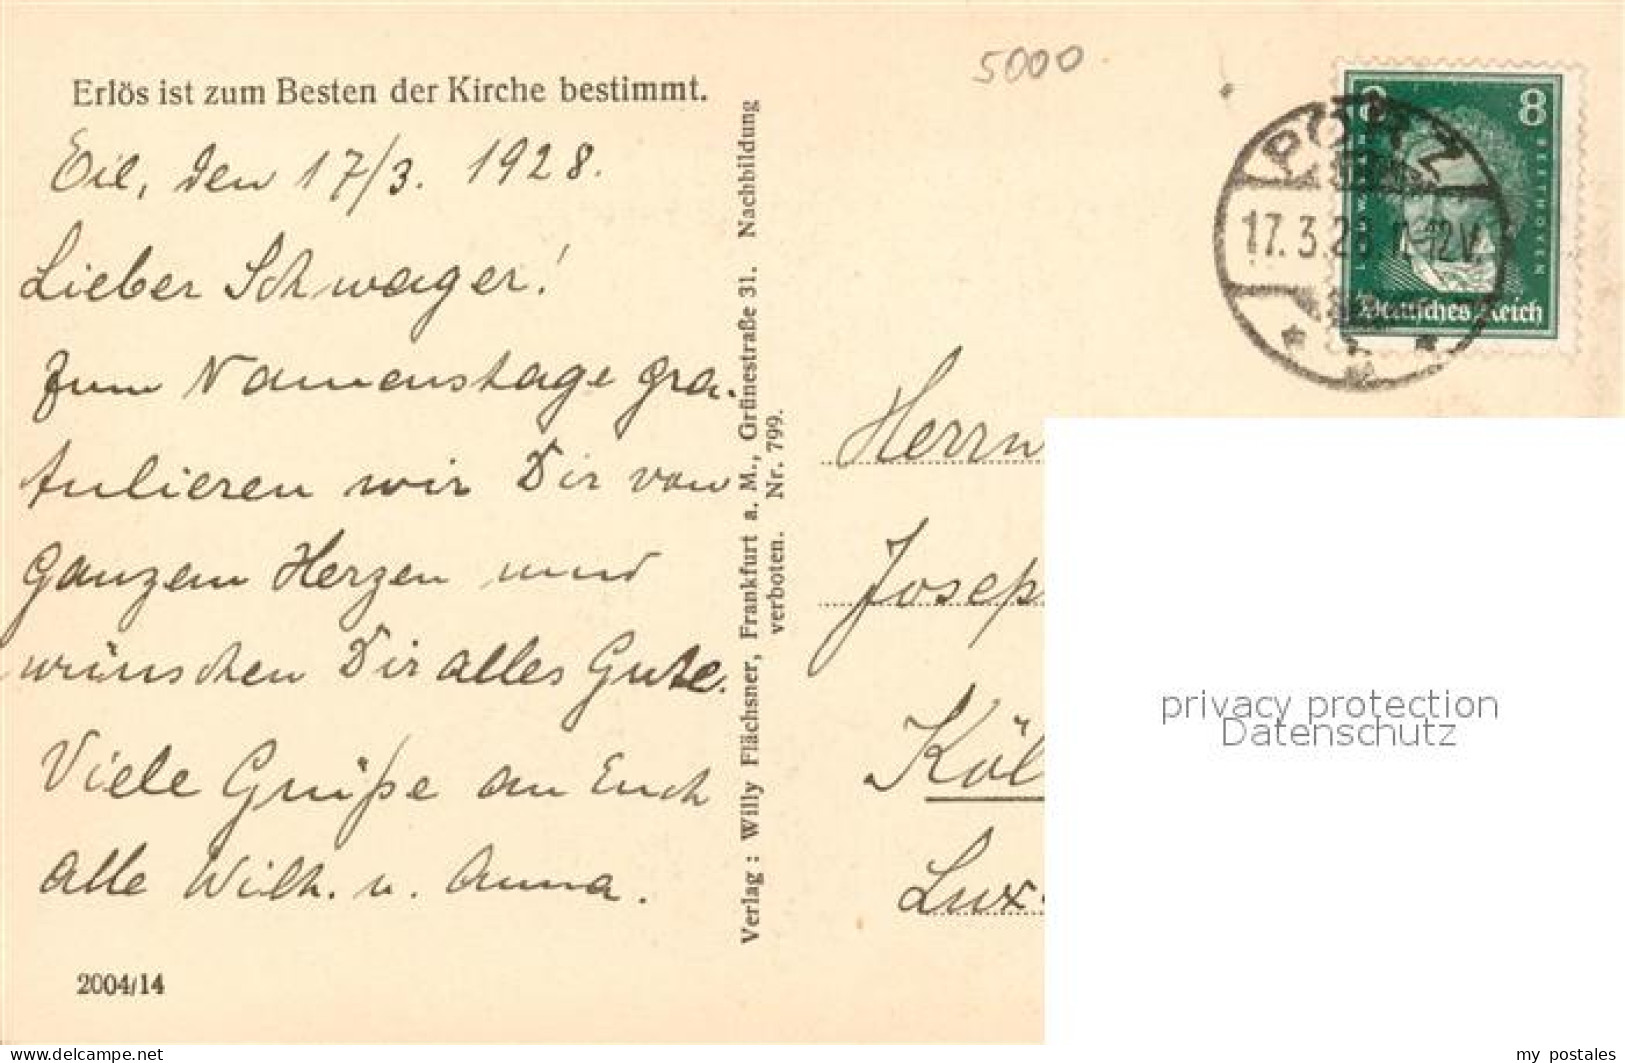 Erlös ist zum Besten der Kirche bestimmt.
Eil, den 17/3. 1928.
Lieber Schwager!
Zum Namenstage gra-
tulieren wir Dir von
ganzem Herzen und
wünschen Dir alles Gute.
Viele Grüße an Euch
alle Wilh. u. Anna.
2004/14
Verlag: Willy Flächsner, Frankfurt a. M., Grünestraße 31. Nachbildung
verboten. Nr. 799.
5000
PORZ
17.3.2 11-12V.
8 8
LUDW. VAN BEETHOVEN
Deutsches Reich
Herrn
Josep
Köl
Lux-
privacy protection
Datenschutz
www.delcampe.net
my_postales